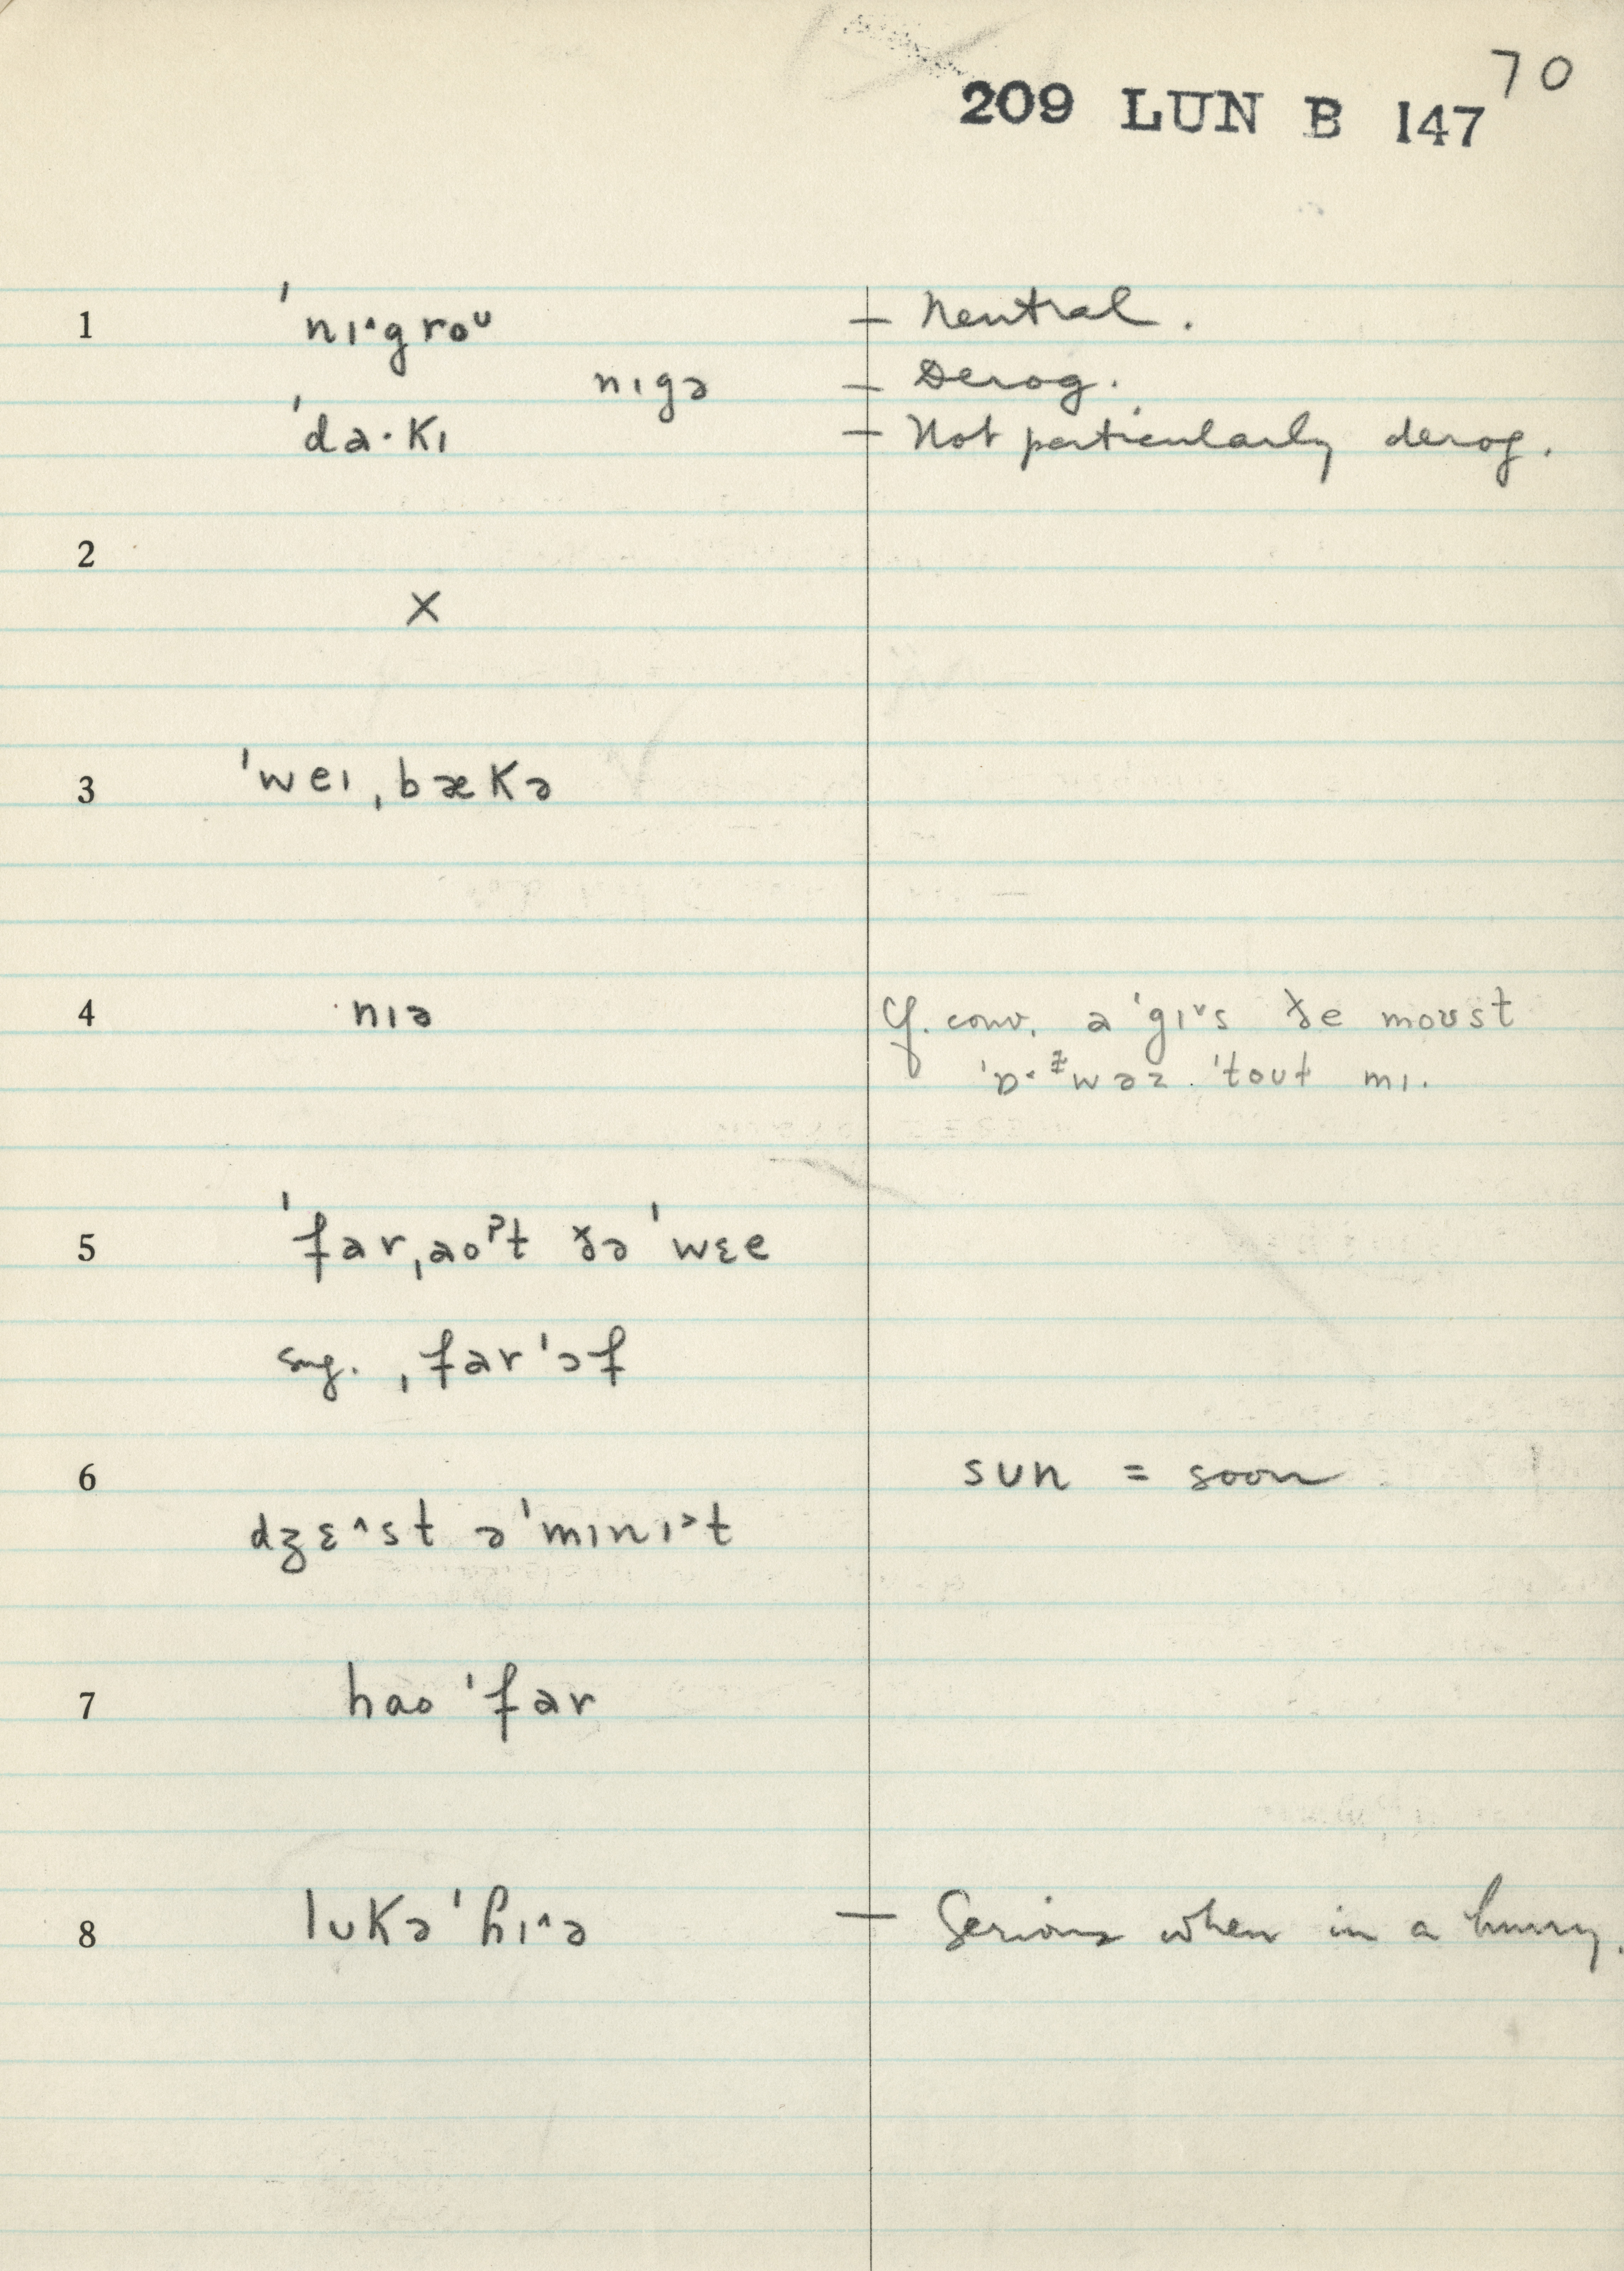 70
209 LUN B 147
1 ˈnɪ˄groᴜ — Neutral.
nɪgə — Derog.
ˈda·kɪ — Not particularly derog.
2
X
3 ˈweɪˌbækə
4 nɪə Cf. conv. a ˈgɪ˅s ðe moʊst
ˈtoʊt mɪ.
5 ˈfarˌaoˀt ðə ˈwɛe
sug. ˌfarˈɔf
6 sun = soon
dʒɛ˄st əˈmɪnɪ˃t
7 hao ˈfar
8 lʊkəˈhɪ˄ə — Serious when in a hurry.